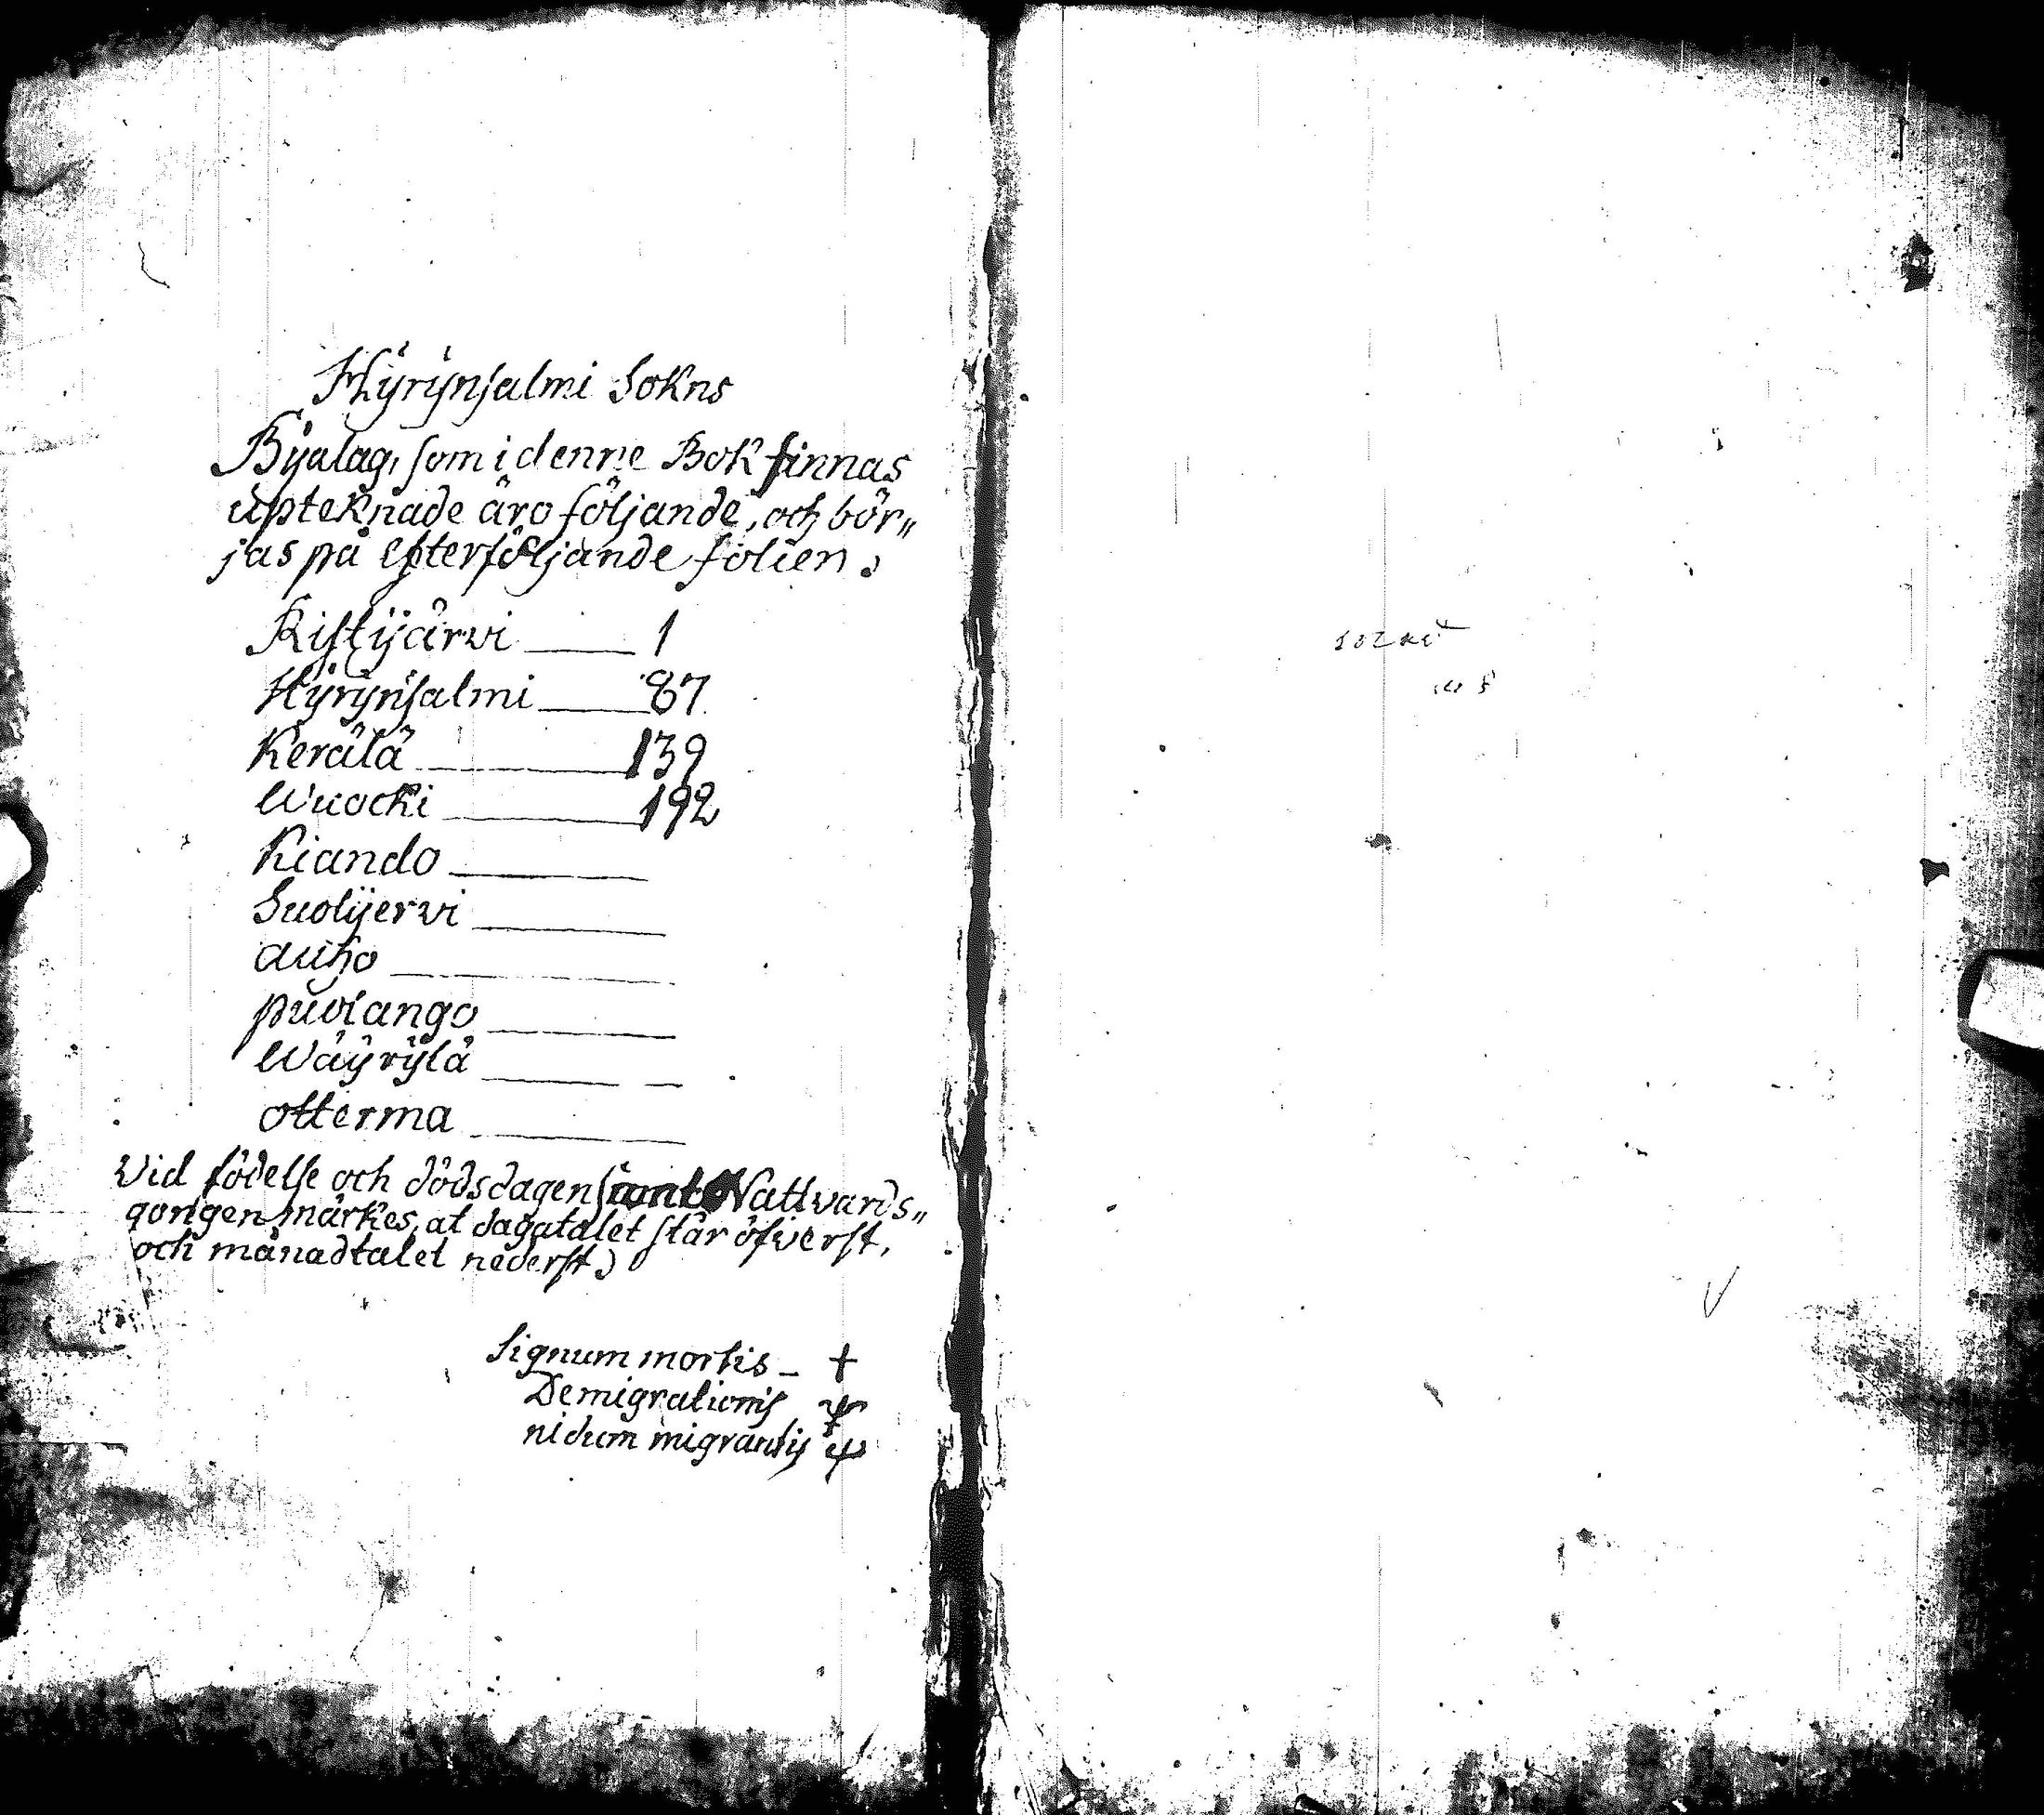 Hÿrÿnsalmi Sokns
Bÿalag, som i denne Bok finnas
upteknade äro följande, och bör„
jas på efterföljande folier.
Ristijärvi 1
Hÿrÿnsalmi 87
Kerälä 139
Wuocki 192
Kiando
Suolijerwi
Auho
puolango
Wäÿrÿlä
otterma
Vid födelse och dödsdagen samt Nattvards„
gongen märkes, at dagatalet står öfwerst,
och månadtalet nederst.
Signum mortis †
Demigrationis
migrantis